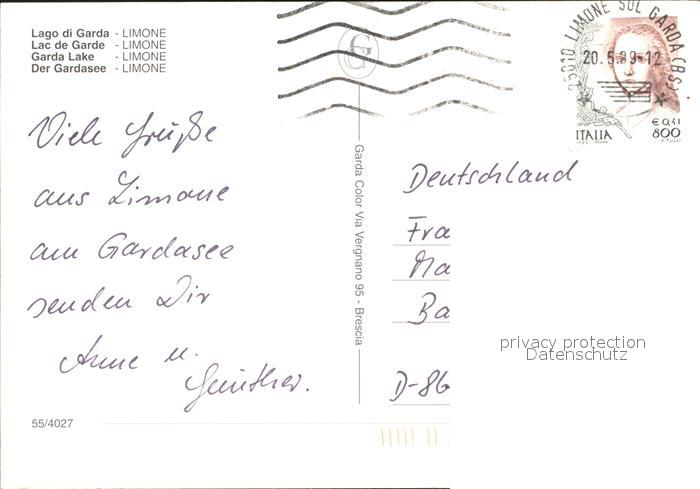 Lago di Garda - LIMONE
Lac de Garde - LIMONE
Garda Lake - LIMONE
Der Gardasee - LIMONE
Viele Grüße
aus Limone
am Gardasee
senden Dir
Anne u.
Günther.
55/4027
Garda Color Via Vergnano 95 - Brescia
25010 LIMONE SUL GARDA (BS)
20.5.99-12
ITALIA
€ 0,41
800
Deutschland
Fra
Ma
Ba
D-86
privacy protection
Datenschutz